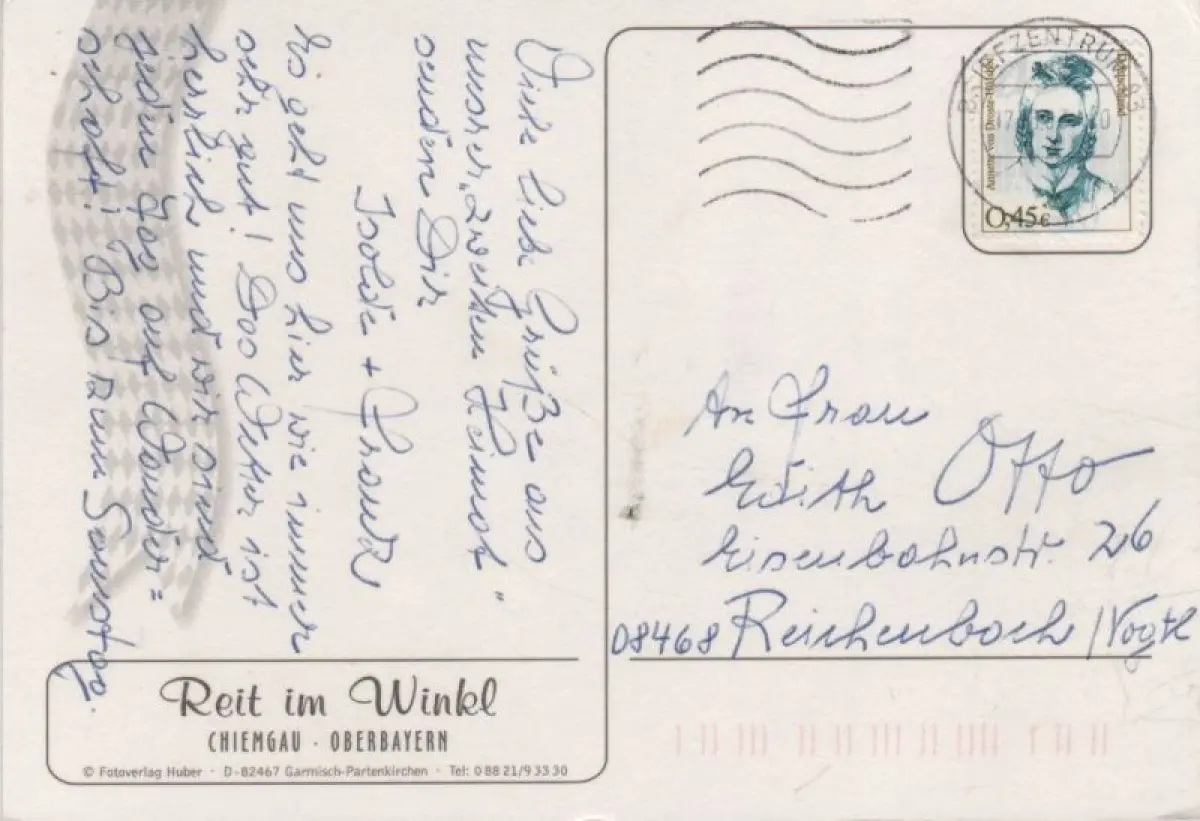 Viele liebe Grüße aus
unsrer „zweiten Heimat"
senden Dir
Isolde +
Es geht uns hier wie immer
sehr gut! Das Wetter ist
herrlich und wir sind
jeden Tag auf Wander=
schaft! Bis zum Samstag.
Reit im Winkl
CHIEMGAU · OBERBAYERN
© Fotoverlag Huber · D-82467 Garmisch-Partenkirchen · Tel: 0 88 21/9 33 30
BRIEFZENTRUM 83
17
Deutschland
Annette von Droste-Hülshoff
0,45€
An Frau
Edith Otto
Eisenbahnstr. 26
08468 Reichenbach /Vogtl